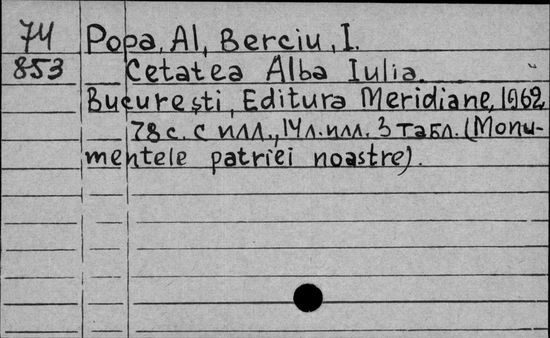 74 Popa, Al, Berciu, I.
853 Cetatea Alba Iulia.
București, Editura Meridiane, 1962,
78 с. с илл., 14 л. илл. 3 табл. (Monu-
mentele patriei noastre).